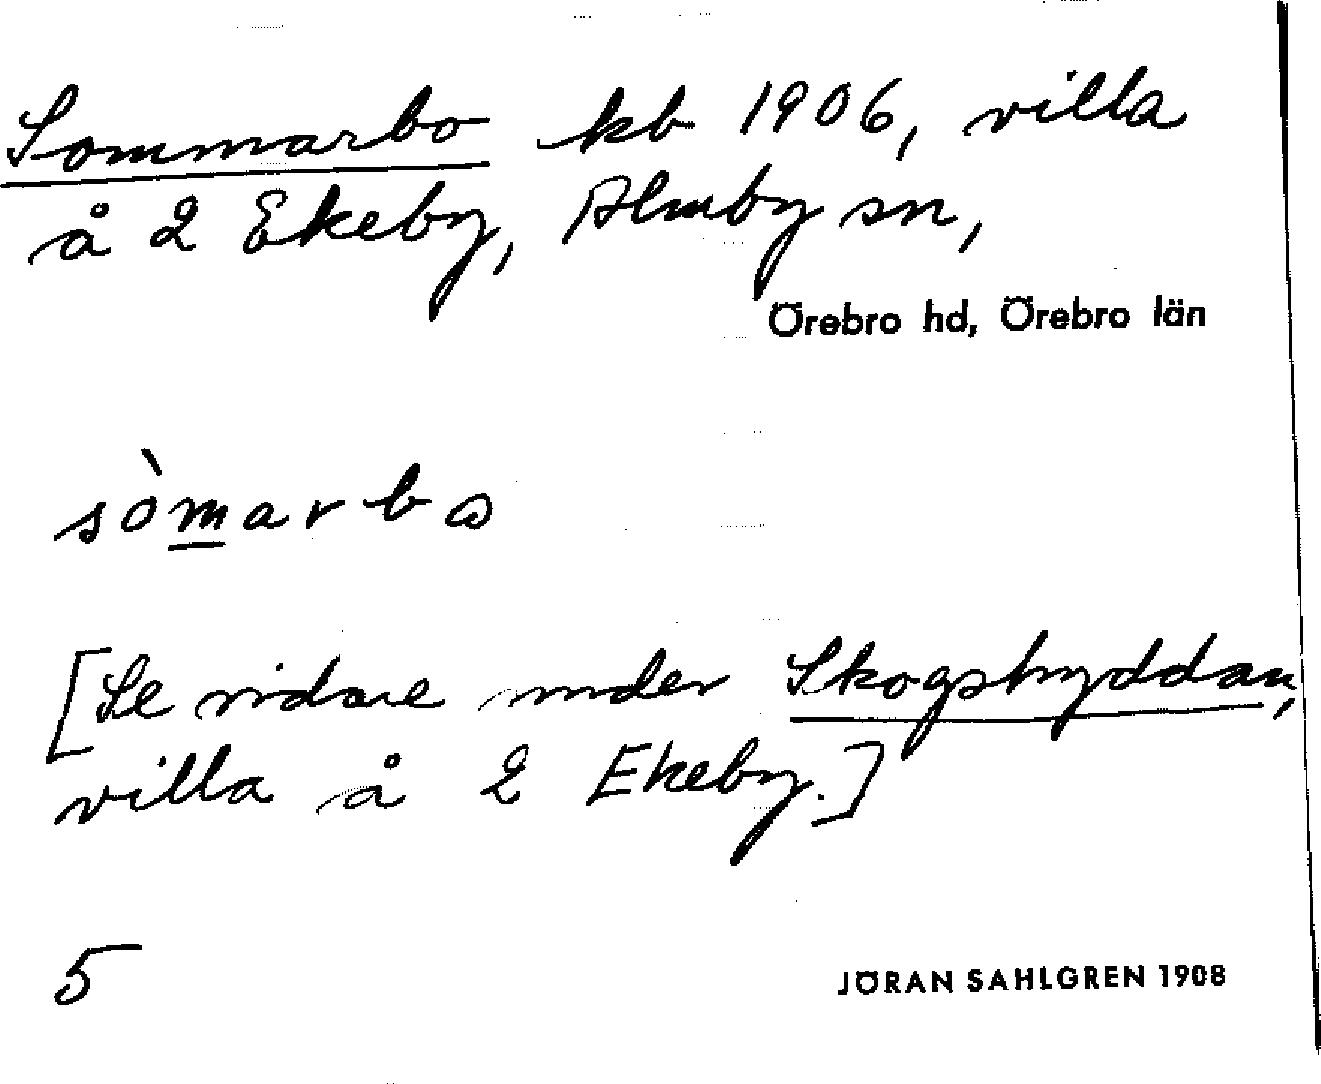 Sommarbo kb 1906, villa
å 2 Ekeby, Almby sn,
Örebro hd, Örebro län
sòmarbω
[Se vidare under Skogshyddan,
villa å 2 Ekeby.]
5
JÖRAN SAHLGREN 1908